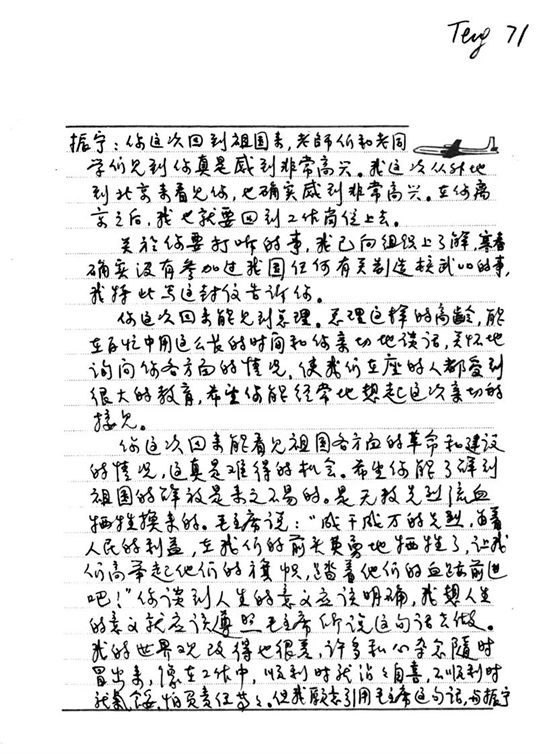 Teng 71
振宁：你这次回到祖国来，老師们和老同
学们见到你真是感到非常高兴。我这次从外地
到北京来看见你，也确实感到非常高兴。在你离
京之后，我也就要回到工作岗位上去。
关於你要打听的事，我已向组织上了解，寒春
确实没有参加过我国任何有关制造核武口的事，
我特此写这封信告诉你。
你这次回来能见到总理。总理这样的高龄，能
在百忙中用这么长的时间和你亲切地谈话，关怀地
询问你各方面的情况，使我们在座的人都受到
很大的教育，希望你能经常地想起这次亲切的
接见。
你这次回来能看见祖国各方面的革命和建设
的情况，这真是难得的机会。希望你能了解到
祖国的解放是来之不易的。是无数先烈流血
牺牲换来的。毛主席说："成千成万的先烈，为着
人民的利益，在我们的前头英勇地牺牲了，让我
们高举起他们的旗帜，踏着他们的血迹前进
吧！"你谈到人生的意义应该明确，我想人生
的意义就应该遵照毛主席所说这句话去做。
我的世界观改得也很差，许多私心杂念随时
冒出来，像在工作中，顺利时就沾沾自喜，不顺利时
就气馁，怕负责任等等。但我愿意引用毛主席这句话，与振宁